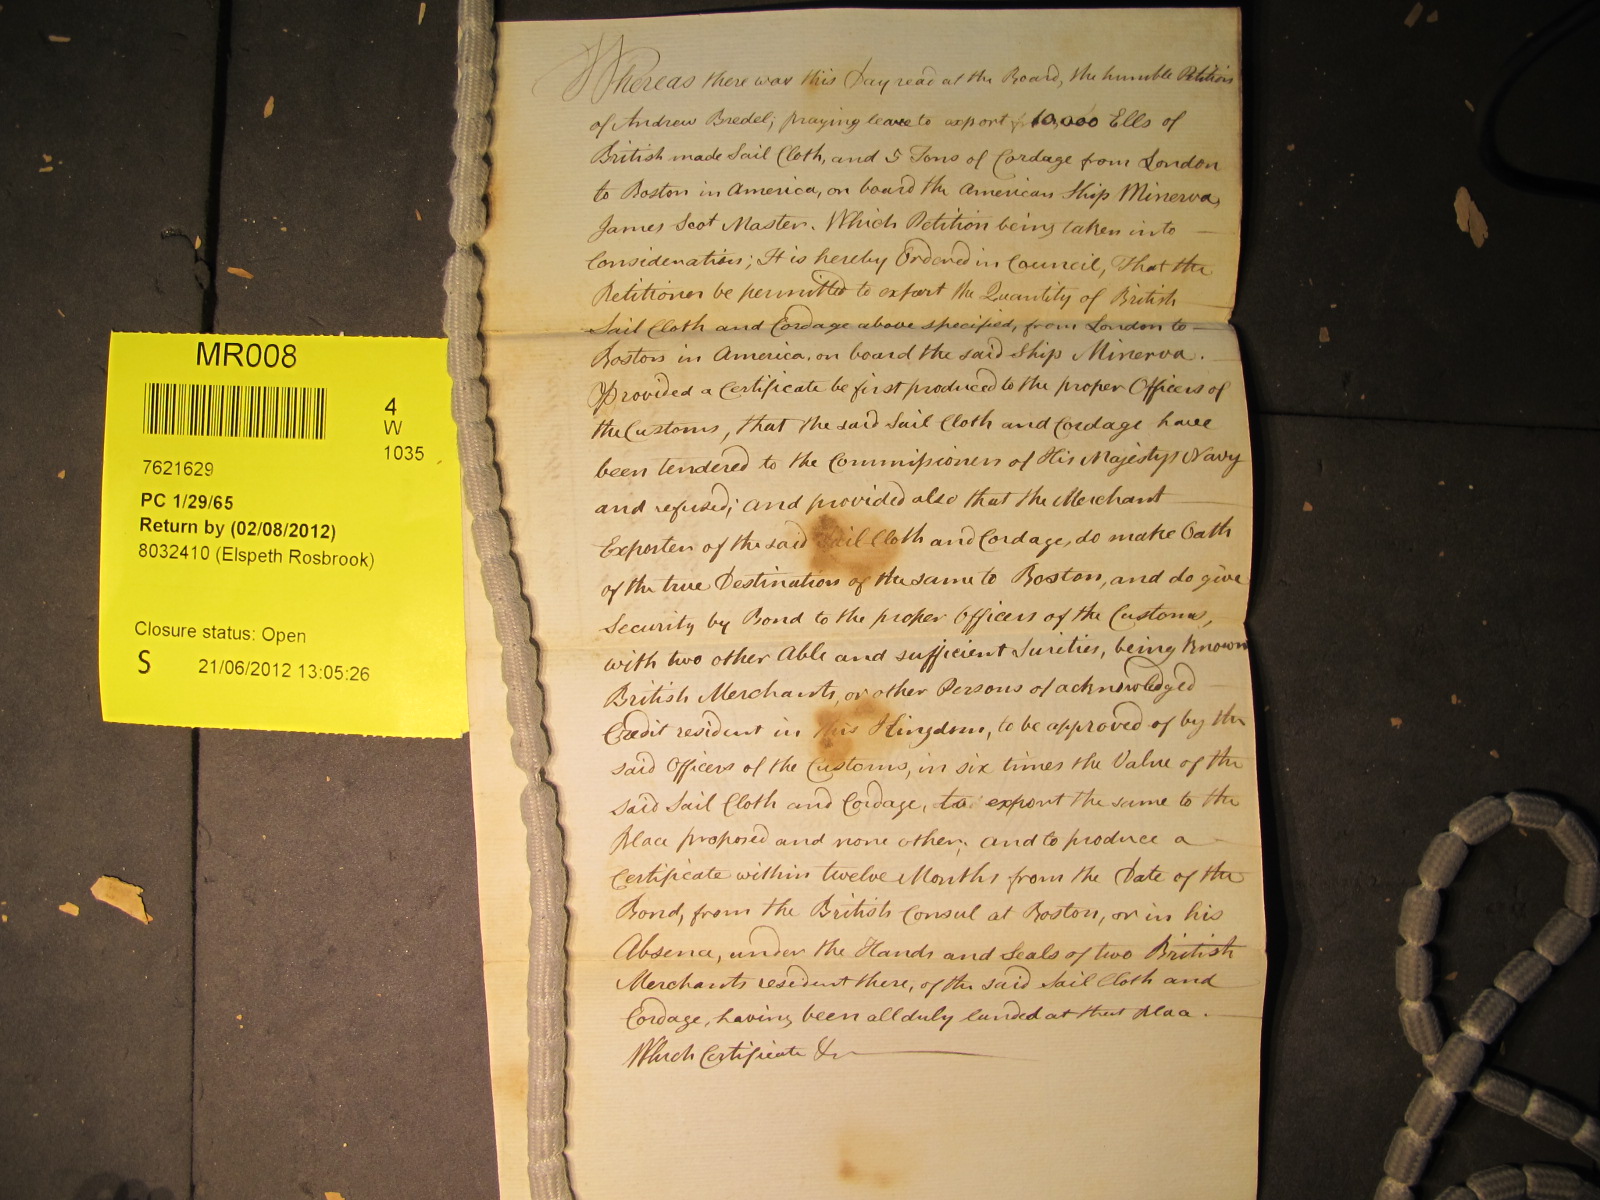 MR008
4
W
1035
7621629
PC 1/29/65
Return by (02/08/2012)
8032410 (Elspeth Rosbrook)
Closure status: Open
S 21/06/2012 13:05:26
Whereas there was this Day read at the Board, the humble Petition
of Andrew Bredel; praying leave to export 10,000 Ells of
British made Sail Cloth, and 5 Tons of Cordage from London
to Boston in America, on board the American Ship Minerva,
James Scot Master. Which Petition being taken into
Consideration; It is hereby Ordered in Council, That the
Petitioner be permitted to export the Quantity of British
Sail Cloth and Cordage above specified, from London to
Boston in America, on board the said Ship Minerva.
Provided a Certificate be first produced to the proper Officers of
the Customs, that the said Sail Cloth and Cordage have
been tendered to the Commissioners of His Majesty's Navy
and refused; and provided also that the Merchant
Exporter of the said Sail Cloth and Cordage, do make Oath
of the true Destination of the same to Boston, and do give
Security by Bond to the proper Officers of the Customs,
with two other Able and sufficient Sureties, being known
British Merchants, or other Persons of acknowledged
Credit resident in this Kingdom, to be approved of by the
said Officers of the Customs, in six times the Value of the
said Sail Cloth and Cordage, to export the same to the
Place proposed and none other; and to produce a
Certificate within twelve Months from the Date of the
Bond, from the British Consul at Boston, or in his
Absence, under the Hands and Seals of two British
Merchants resident there, of the said Sail Cloth and
Cordage, having been all duly landed at that Place.
Which Certificate &c